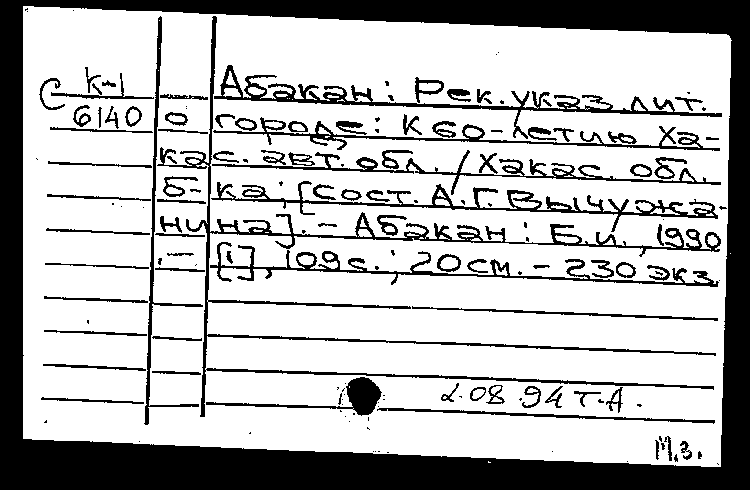 С К-1 Абакан: Рек. указ. лит.
6140 о городе: К 60-летию Ха-
кас. авт. обл. / Хакас. обл.
б-ка; [Сост. А.Г. Вычужа-
нина]. - Абакан: Б.и., 1990
. - [1], 109 с.; 20 см. - 230 экз
2.08.94 Т.А.
М.З.